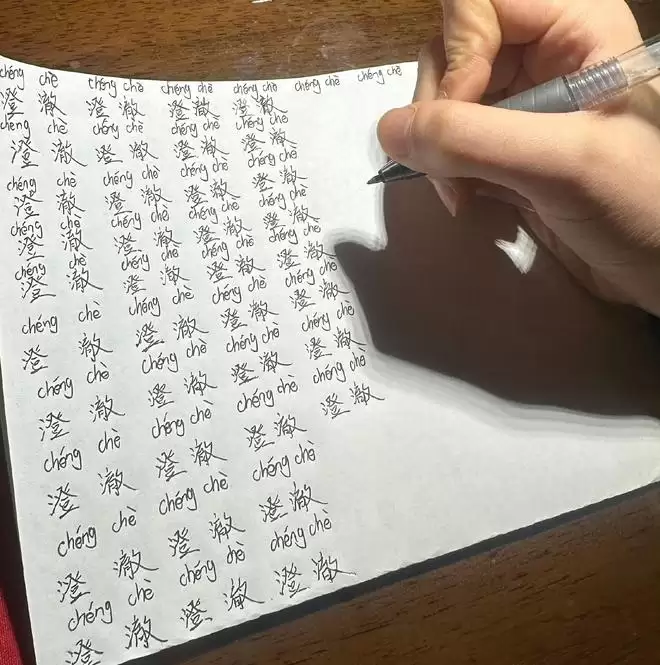 chéng chè chéng chè chéng chè chéng chè chéng chè
澄澈 澄澈 澄澈 澄澈
chéng chè chéng chè chéng chè chéng chè
澄澈 澄澈 澄澈 澄澈
chéng chè chéng chè chéng chè chéng chè
澄澈 澄澈 澄澈 澄澈
chéng chè chéng chè chéng chè chéng chè
澄澈 澄澈 澄澈 澄澈
chéng chè chéng chè chéng chè chéng chè
澄澈 澄澈 澄澈 澄澈
chéng chè chéng chè chéng chè chéng chè
澄澈 澄澈 澄澈 澄澈
chéng chè chéng chè chéng chè chéng chè
澄澈 澄澈 澄澈 澄澈
chéng chè chéng chè chéng chè chéng chè
澄澈 澄澈 澄澈 澄澈
chéng chè chéng chè chéng chè
澄澈 澄澈 澄澈
chéng chè chéng chè chéng chè
澄澈 澄澈 澄澈